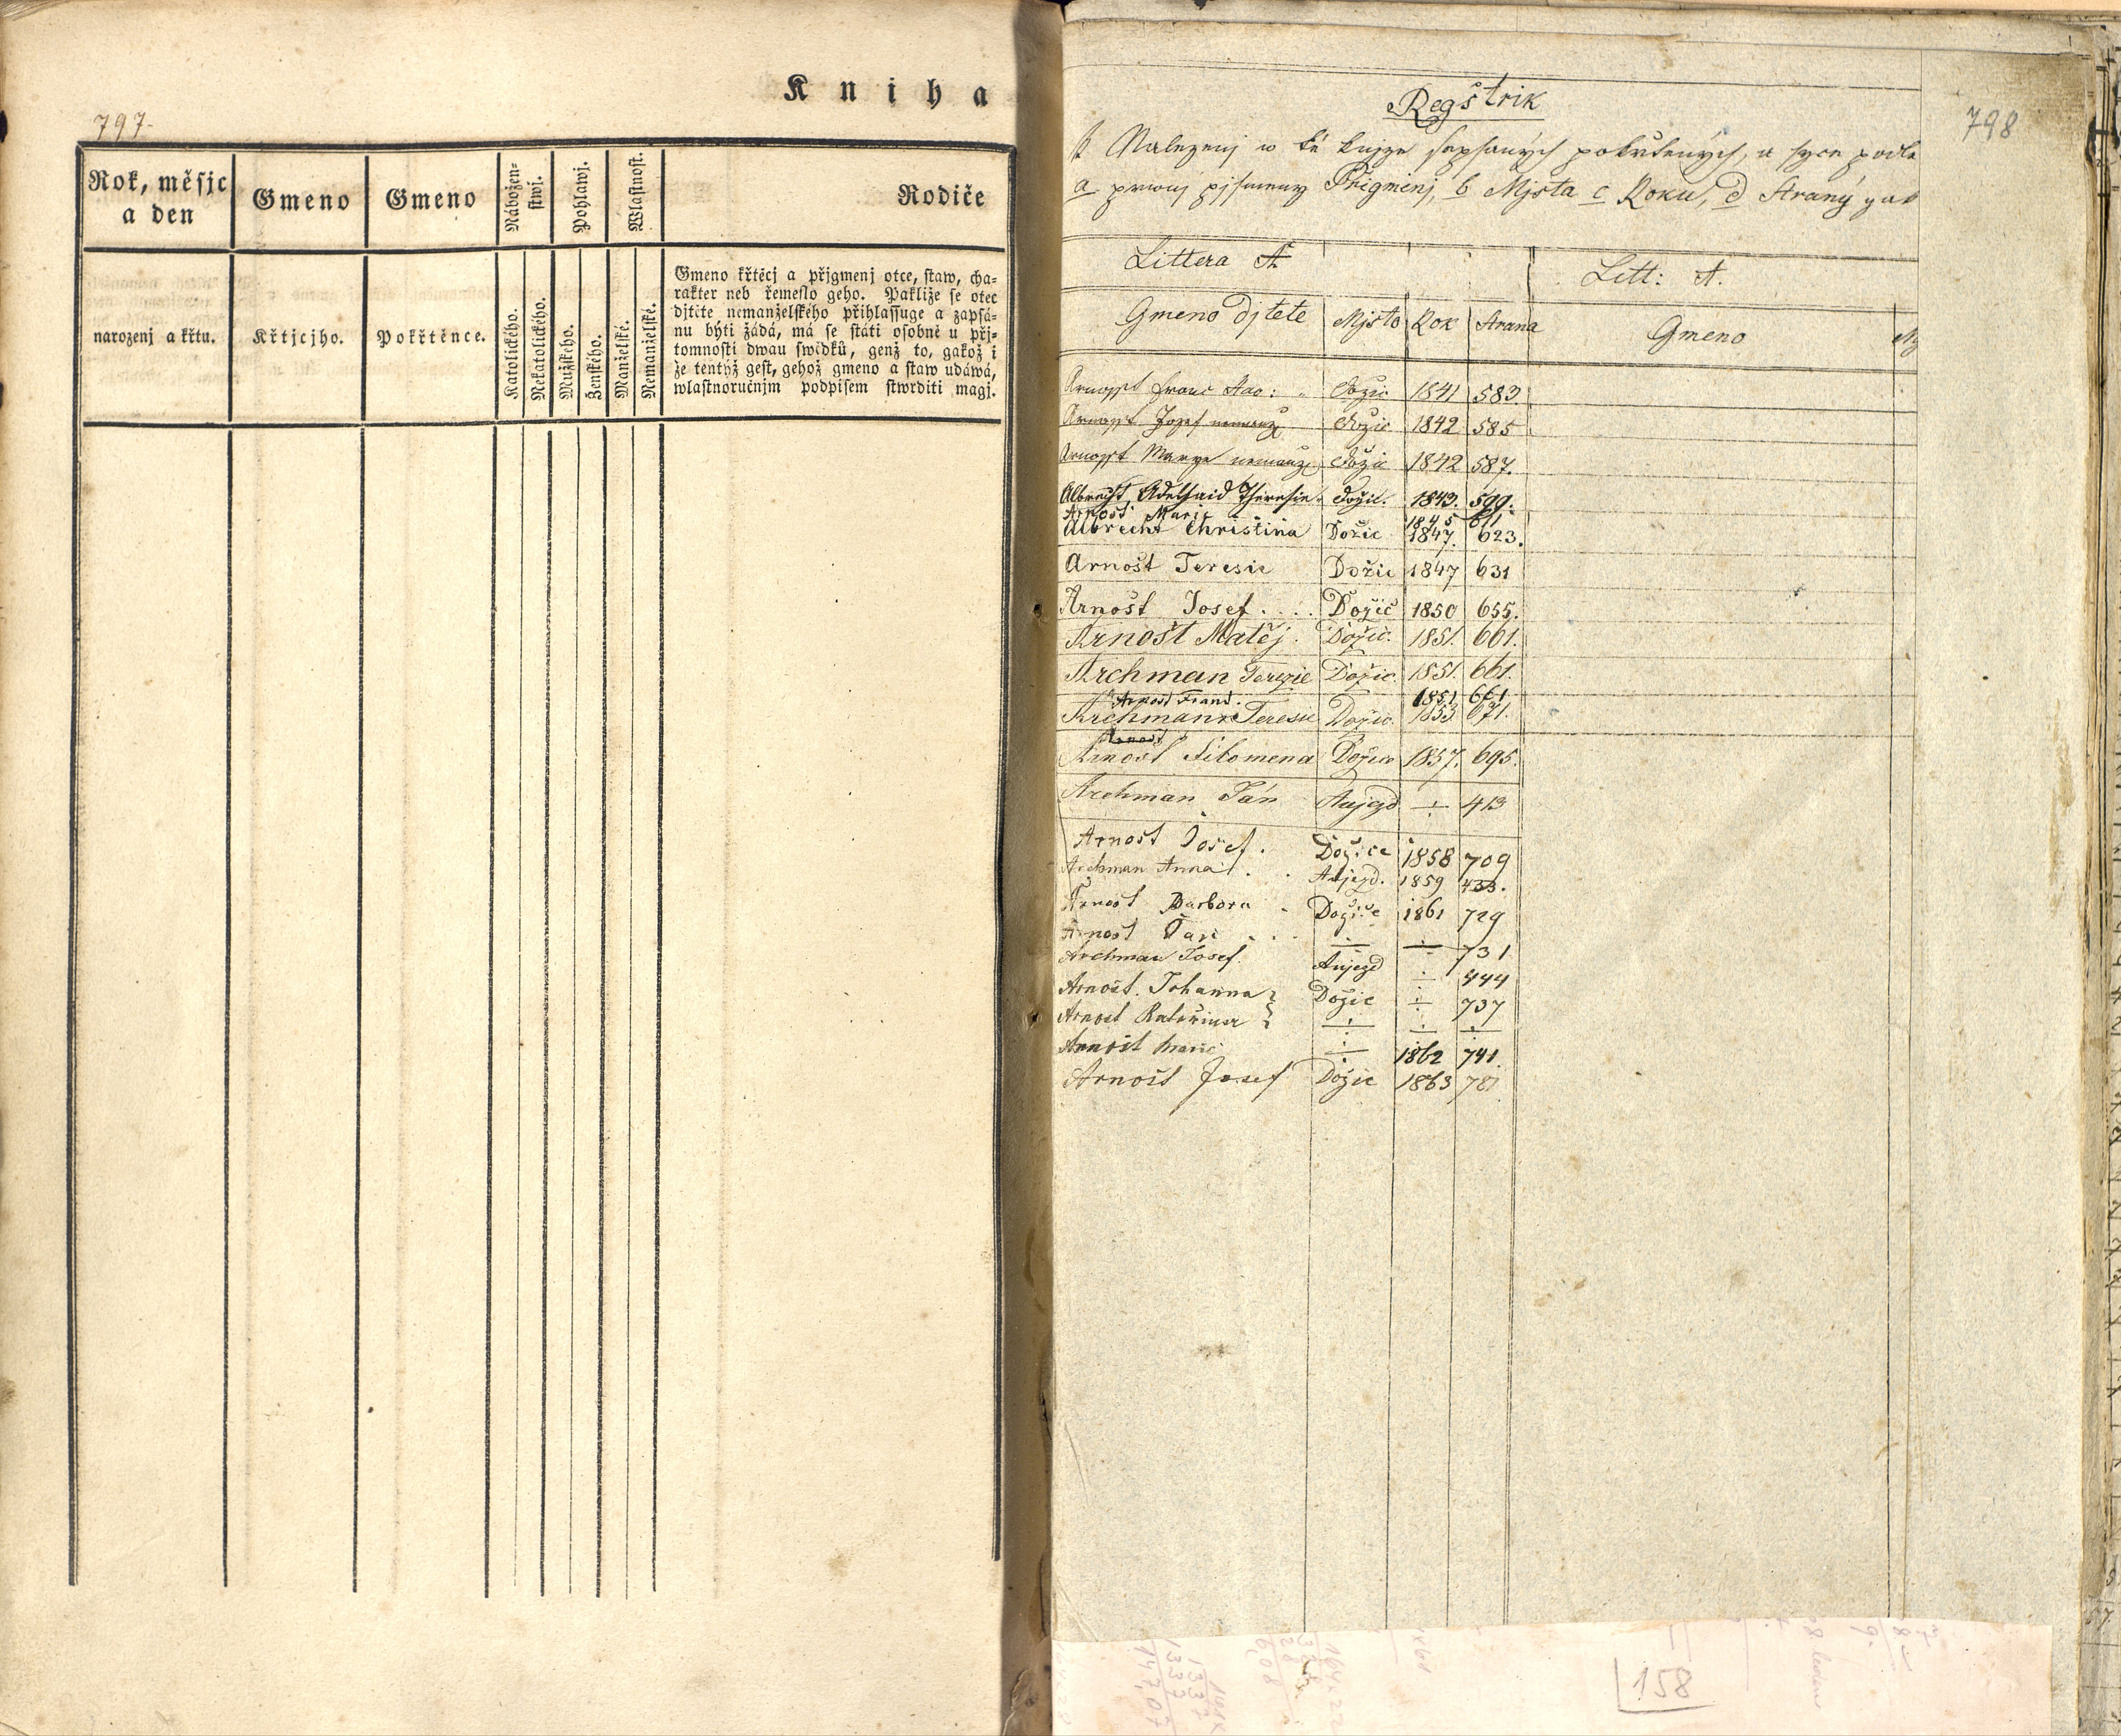 Kniha
797.
Rok, měsjc
a den
Gmeno
Gmeno
Nábožen-
stwj.
Pohlawj.
Wlastnost.
Rodiče
narozenj a křtu.
Křtjcjho.
Pokřtěnce.
Katolického.
Nekatolického.
Mužského.
Ženského.
Manželské.
Nemanželské.
Gmeno křtěcj a přjgmenj otce, staw, cha-
rakter neb řemeslo geho. Pakliže se otec
djtěte nemanželského přihlassuge a zapsá-
nu býti žádá, má se státi osobně u přj-
tomnosti dwau swědků, genž to, gakož i
že tentýž gest, gehož gmeno a staw udáwá,
wlastnoručnjm podpisem stwrditi magj.
798
Regštrik
k Nalezenj w té knjze sepsaných pokřtěných, a syce podle
a prwnj pjsmeny Přigmenj, b Mjsta c Roku, d Strany
Littera A.
Litt: A.
Gmeno djtete Mjsto Rok Strana Gmeno Mj
Arnosst Franc Dožic 1841 583.
Arnosst Jozef nemanž Dožic 1842 585
Arnosst Marye nemanž Dožic 1842 587.
Albrecht Adelhaid Theresie Dožic. 1843. 599.
Arnošt Marie 1845 611
Albrecht Christina Dožic 1847. 623.
Arnošt Teresie Dožic 1847 631
Arnošt Josef.... Dožic 1850 655.
Arnošt Matěj. Dožic. 1851. 661.
Archman Terezie Dožic 1851. 661.
Arnošt Frant. 1851 661
Archmann Teresie Dožic. 1853. 671.
Arnošt
Arnošt Filomena Dožice 1857. 695.
Archman Ján Aujezd ÷ 413
Arnošt Josef. Dožice 1858 709
Archman Anna. . Aujezd. 1859 433.
Arnošt Barbora . Dožice 1861 729
Arnošt Jan . . . ÷ ÷ 731
Archman Josef. Aujezd ÷ 444
Arnošt. Johanna } Dožic ÷ 737
Arnošt Kateřina } ÷ ÷ ÷
Arnošt Marie ÷ 1862 741.
Arnošt Josef Dožic 1863 781
158